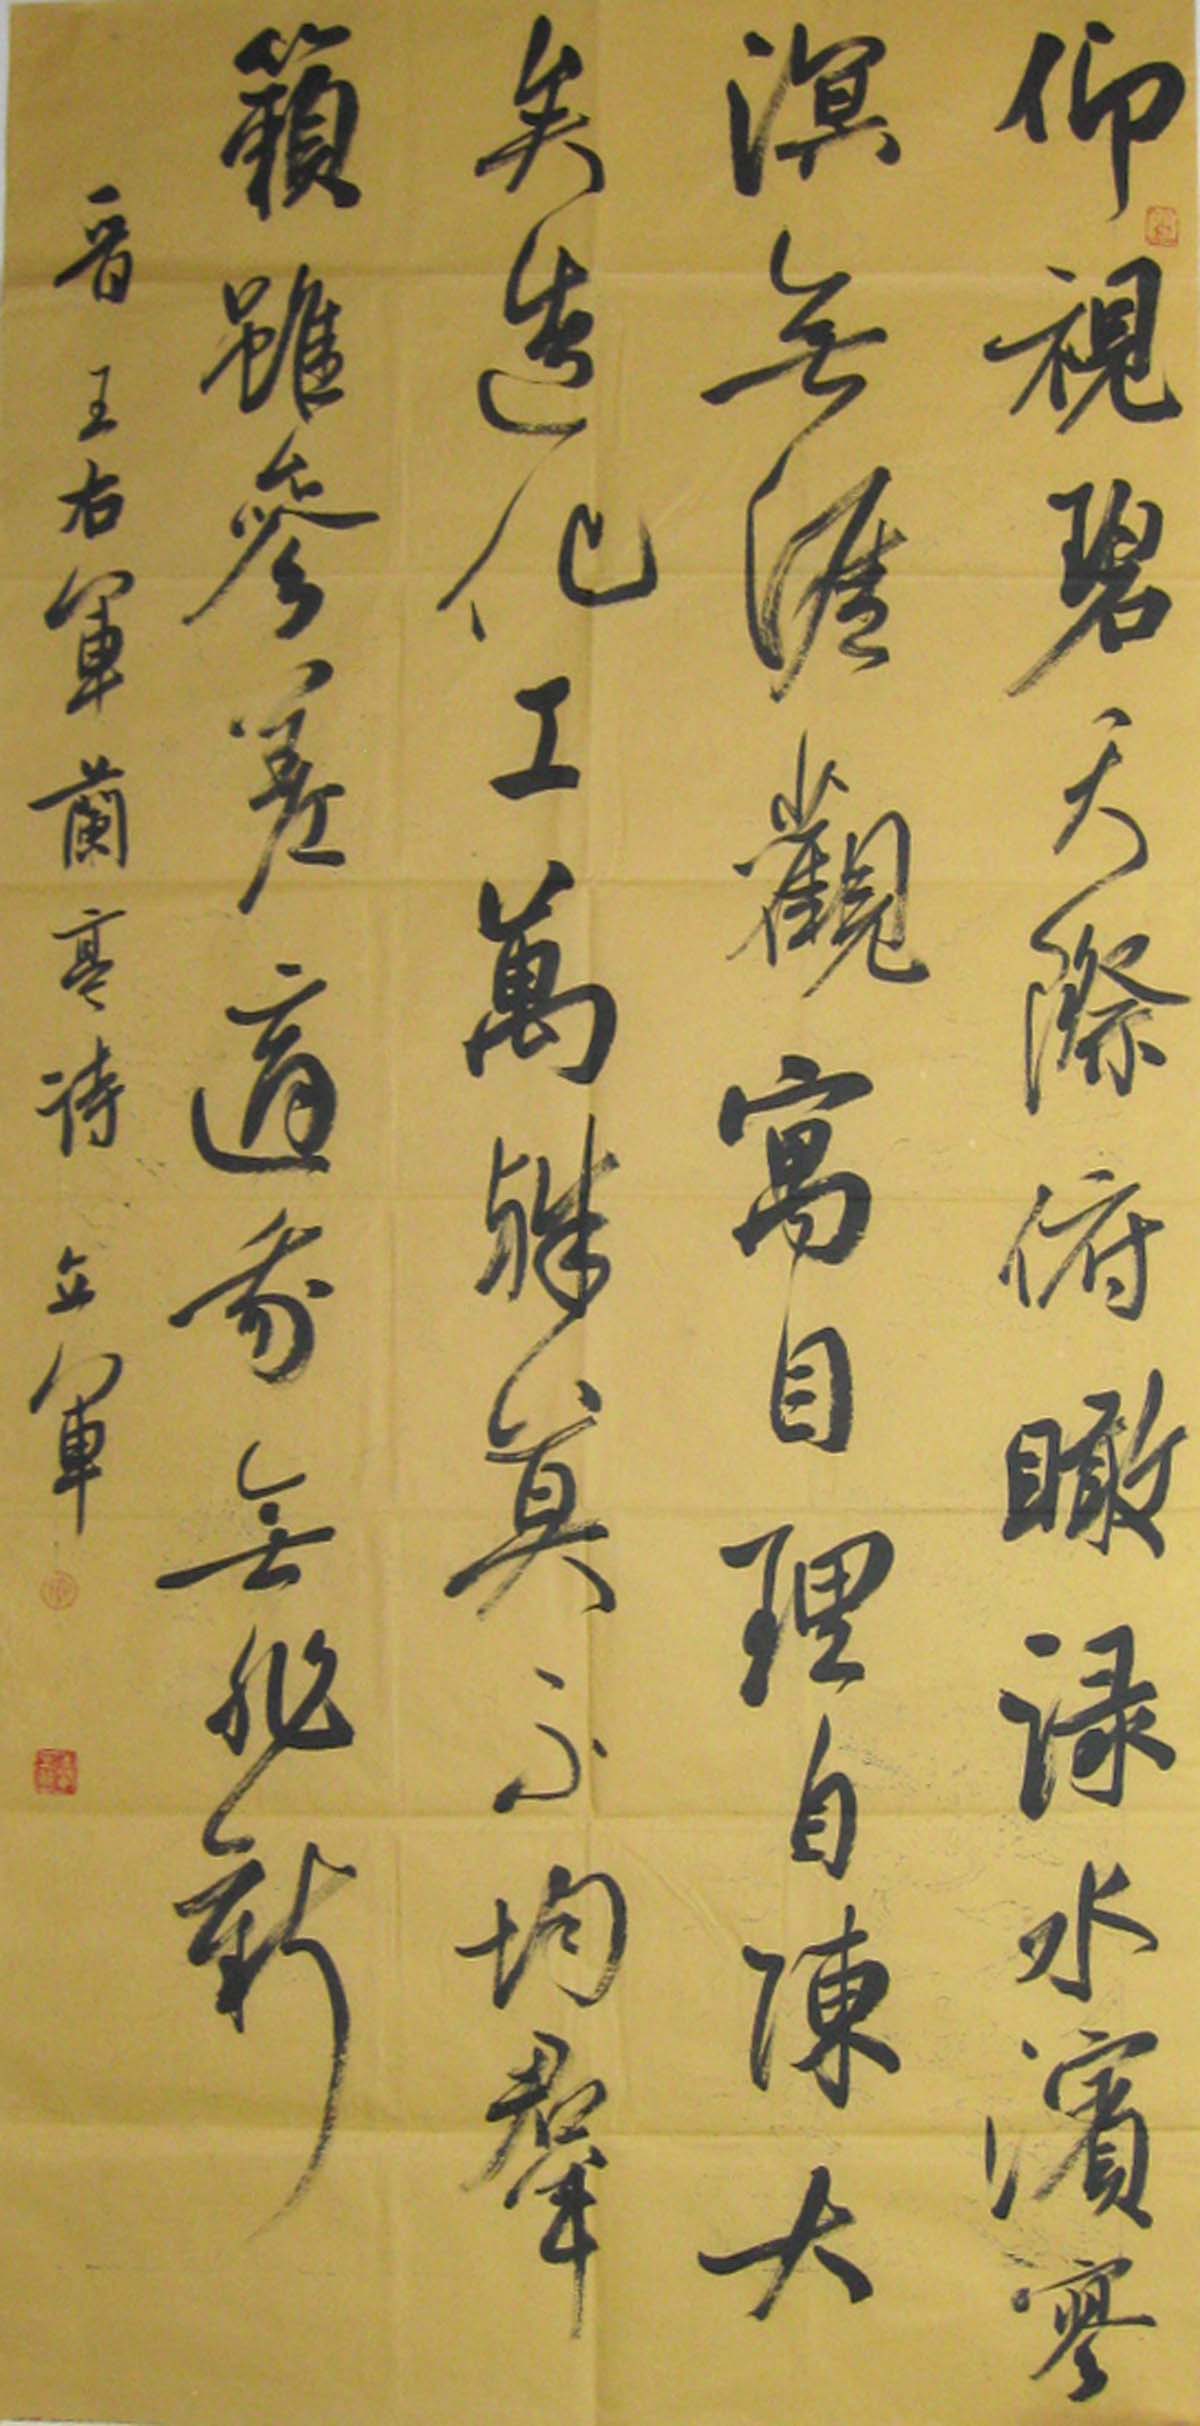 仰視碧天際俯瞰淥水濱寥
溟無涯觀寓目理自陳大
矣造化工萬殊莫不均羣
籟雖參差適我無非新
晉王右軍蘭亭詩 立軍